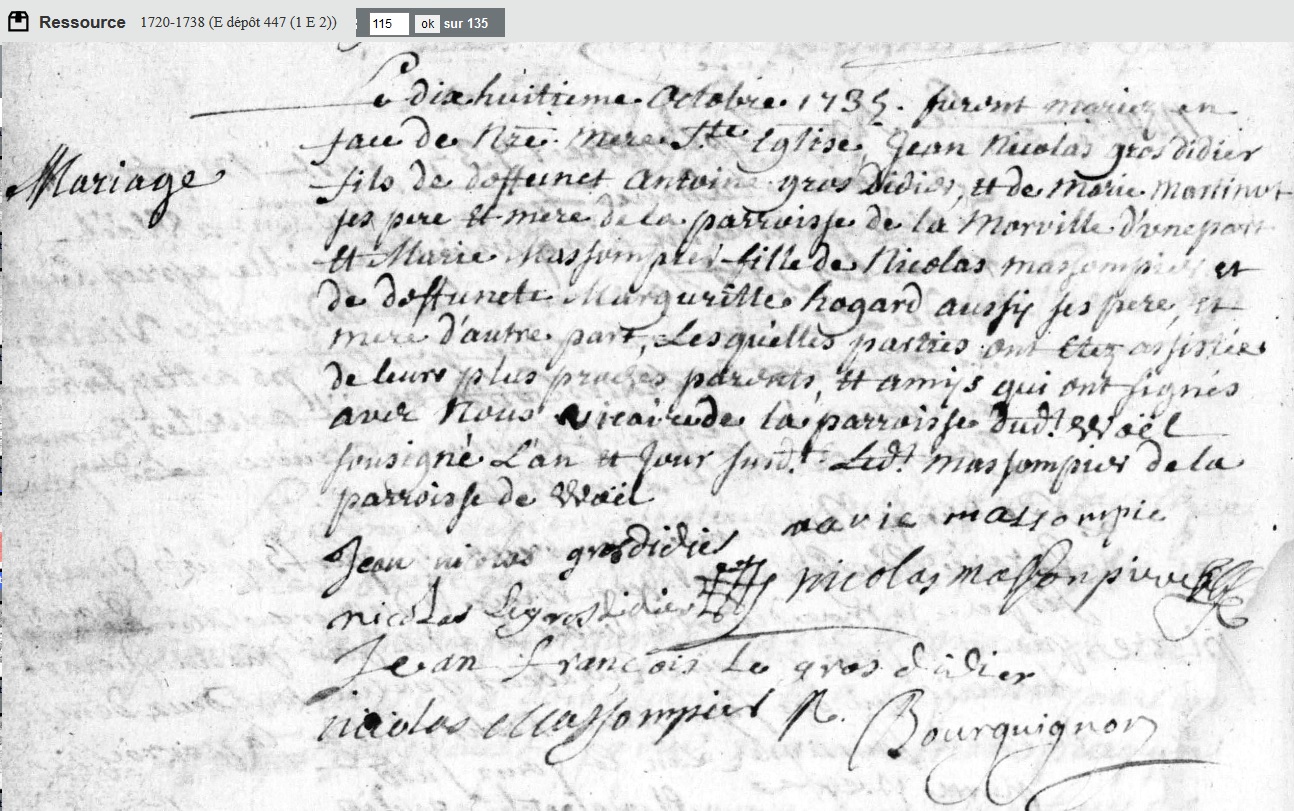 Ressource 1720-1738 (E dépôt 447 (1 E 2)) 115 ok sur 135
Le dixhuitieme Octobre 1735. furent mariez en
face de Nre. Mere Ste Eglise, Jean Nicolas grosdidier
Mariage
fils de deffunct Antoine gros Didier, et de Marie Martinot
ses pere et mere de la parroisse de la Morville d'une part
et Marie Massompier fille de Nicolas massompier et
de deffuncte Margueritte hogard aussy ses pere, et
mere d'autre part, Lesquelles parties ont etez assistées
de leurs plus proches parents, et amijs qui ont signés
avec Nous vicaire de la parroisse dud.t Woël
sousigné L'an et Jour susd.t Led.t massompier de la
parroisse de Woël
Jean nicolas grosdidier marie massompie
nicolas Legrosdidier nicolas massonpier
Jean françois Le gros didier
nicolas Massompier R. Bourguignon